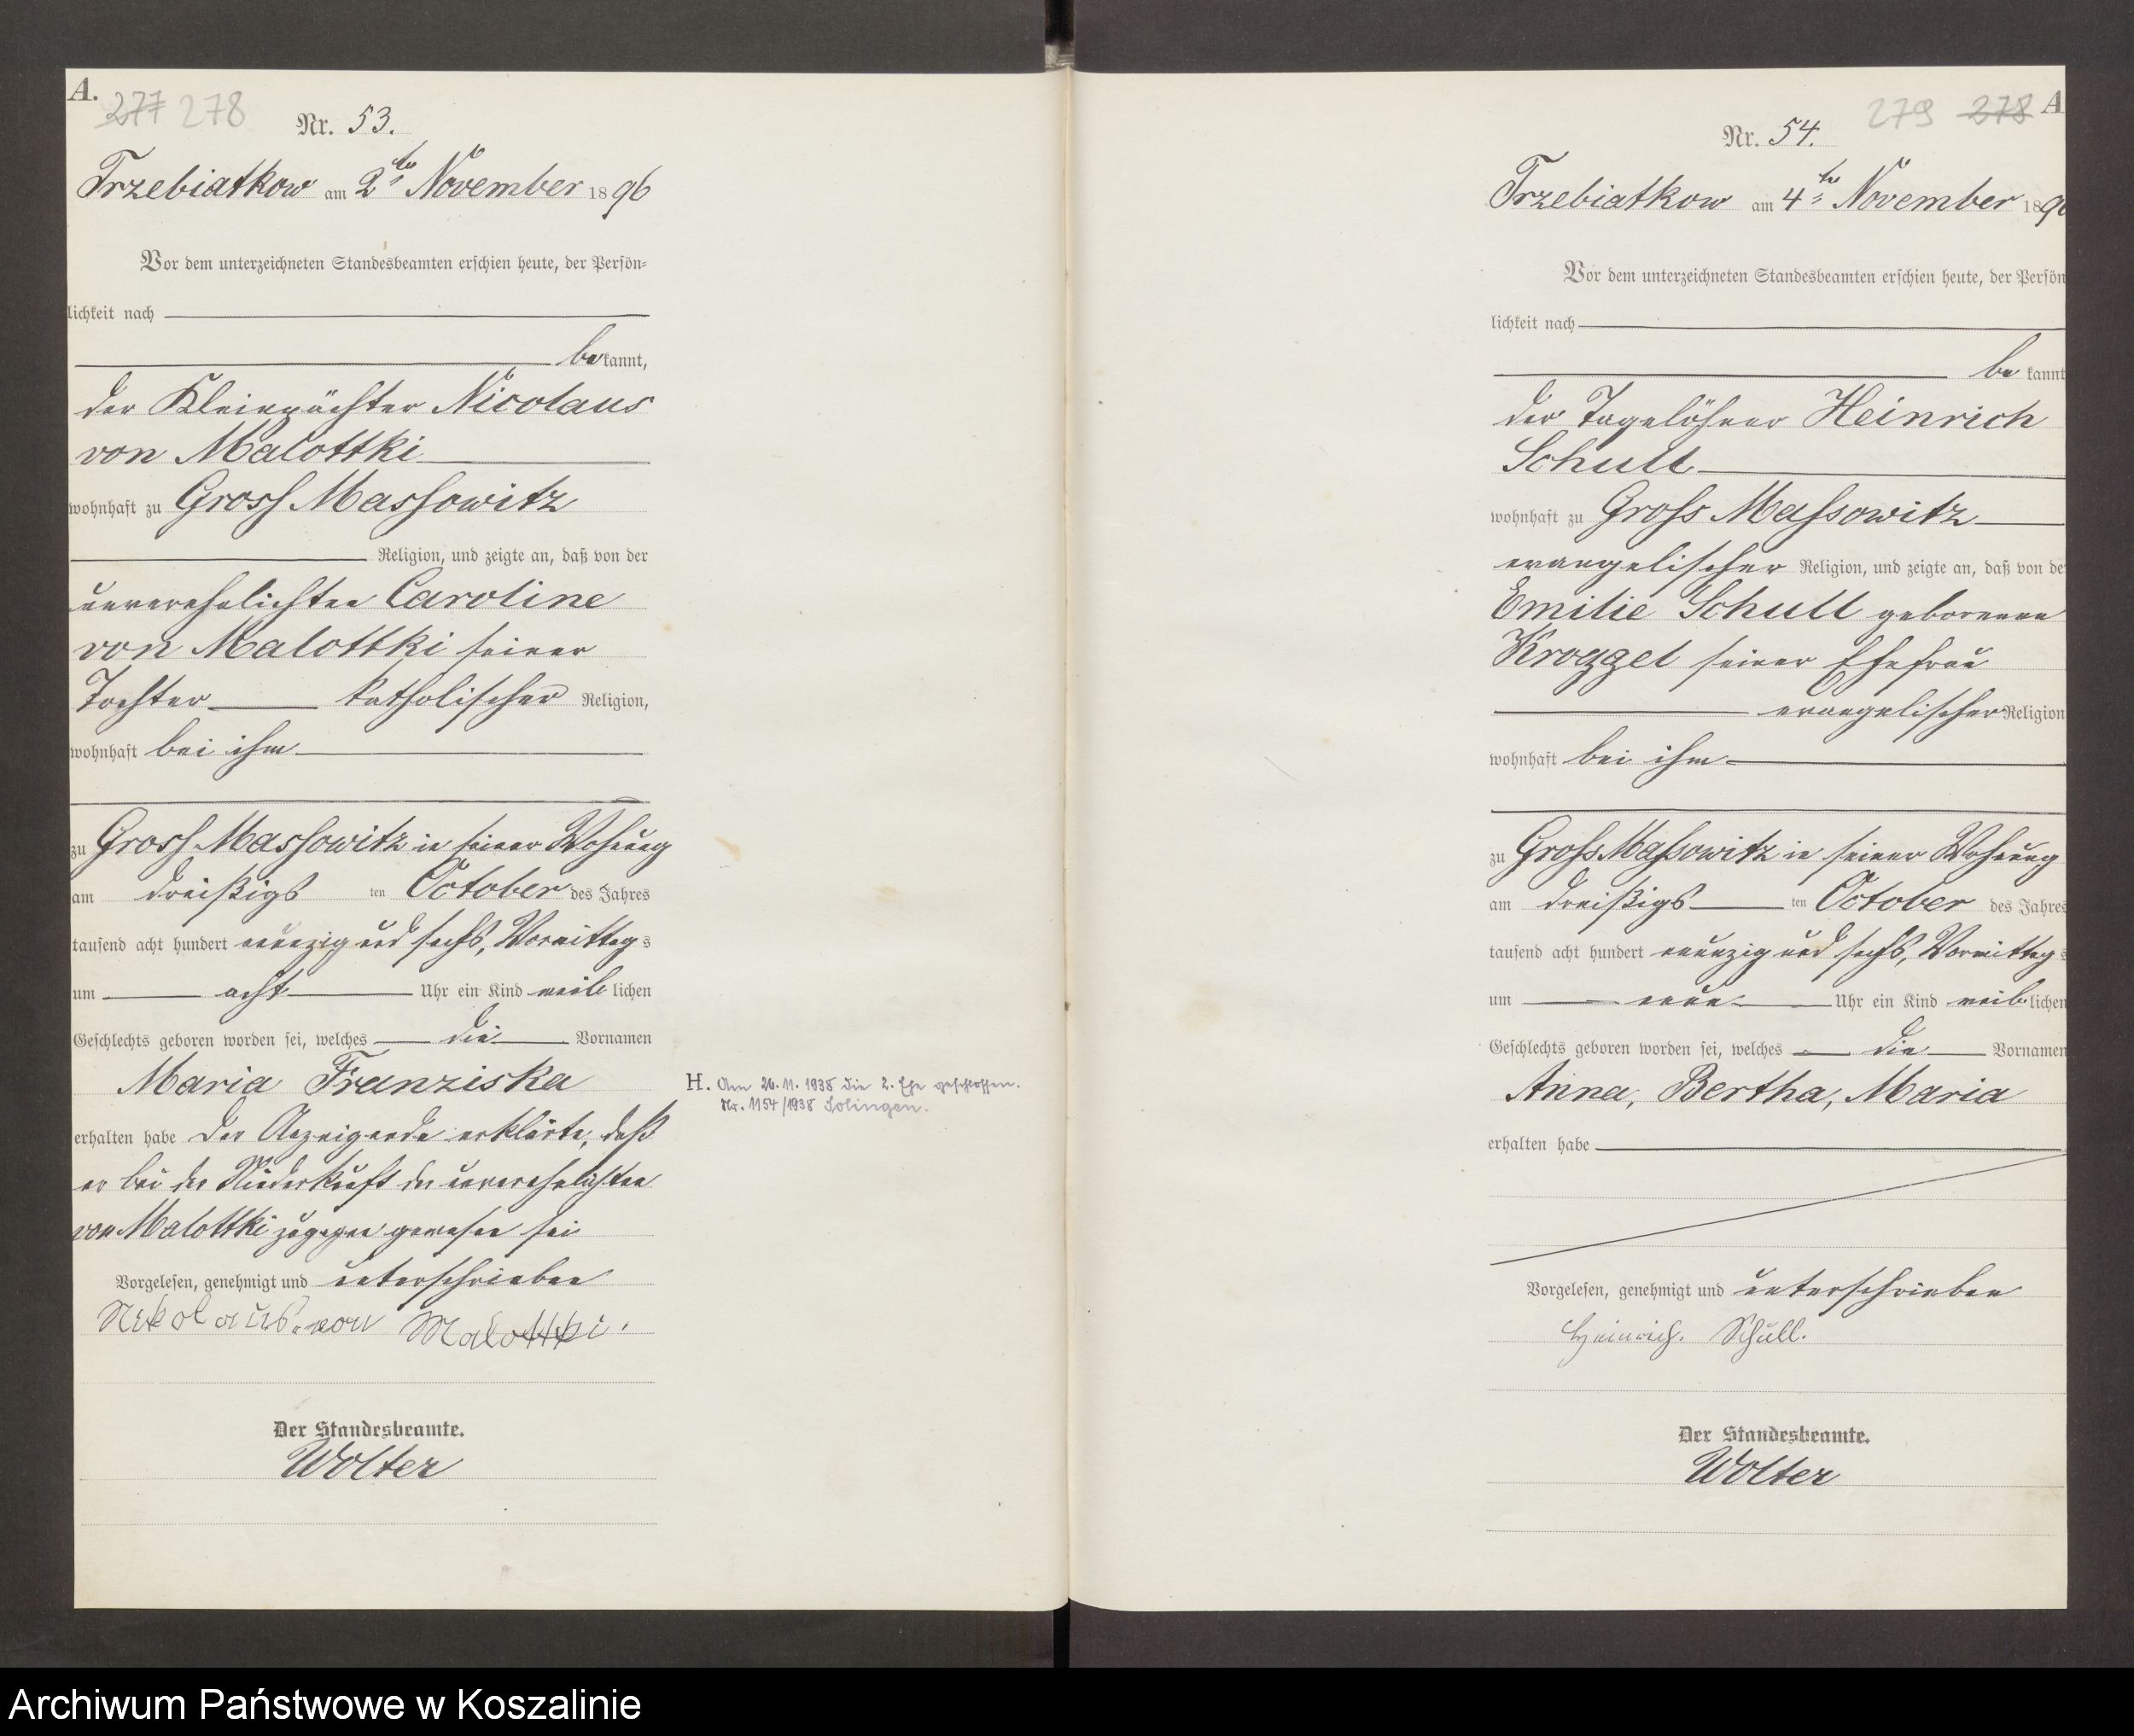 A.
277 278
Nr. 53.
Trzebiatkow am 2ten November 1896
Vor dem unterzeichneten Standesbeamten erschien heute, der Persön-
lichkeit nach
bekannt,
der Kleinpächter Nicolaus
von Malottki
wohnhaft zu Gross Massowitz
Religion, und zeigte an, daß von der
unverehelichten Caroline
von Malottki seiner
Tochter katholischer Religion,
wohnhaft bei ihm
zu Gross Massowitz in seiner Wohnung
am dreißigsten October des Jahres
tausend acht hundert neunzig und sechs, Vormittags
um acht Uhr ein Kind weiblichen
Geschlechts geboren worden sei, welches die Vornamen
Maria Franziska
erhalten habe Der Anzeigende erklärte, daß
er bei der Niederkunft der unverehelichten
von Malottki zugegen gewesen sei
Vorgelesen, genehmigt und unterschrieben
Nikolaus von Malottki.
Der Standesbeamte.
Wolter
H. Am 26.11.1938 die 2. Ehe geschlossen.
Nr. 1154/1938 Solingen.
279 278 A
Nr. 54.
Trzebiatkow am 4ten November 189
Vor dem unterzeichneten Standesbeamten erschien heute, der Persön
lichkeit nach
bekannt
der Tagelöhner Heinrich
Schull
wohnhaft zu Gross Massowitz
evangelischer Religion, und zeigte an, daß von de
Emilie Schull geborenen
Kroggel seiner Ehefrau
evangelischer Religion
wohnhaft bei ihm
zu Gross Massowitz in seiner Wohnung
am dreißigsten October des Jahres
tausend acht hundert neunzig und sechs, Vormittags
um neun Uhr ein Kind weiblichen
Geschlechts geboren worden sei, welches die Vornamen
Anna, Bertha, Maria
erhalten habe
Vorgelesen, genehmigt und unterschrieben
Heinrich. Schull.
Der Standesbeamte.
Wolter
Archiwum Państwowe w Koszalinie